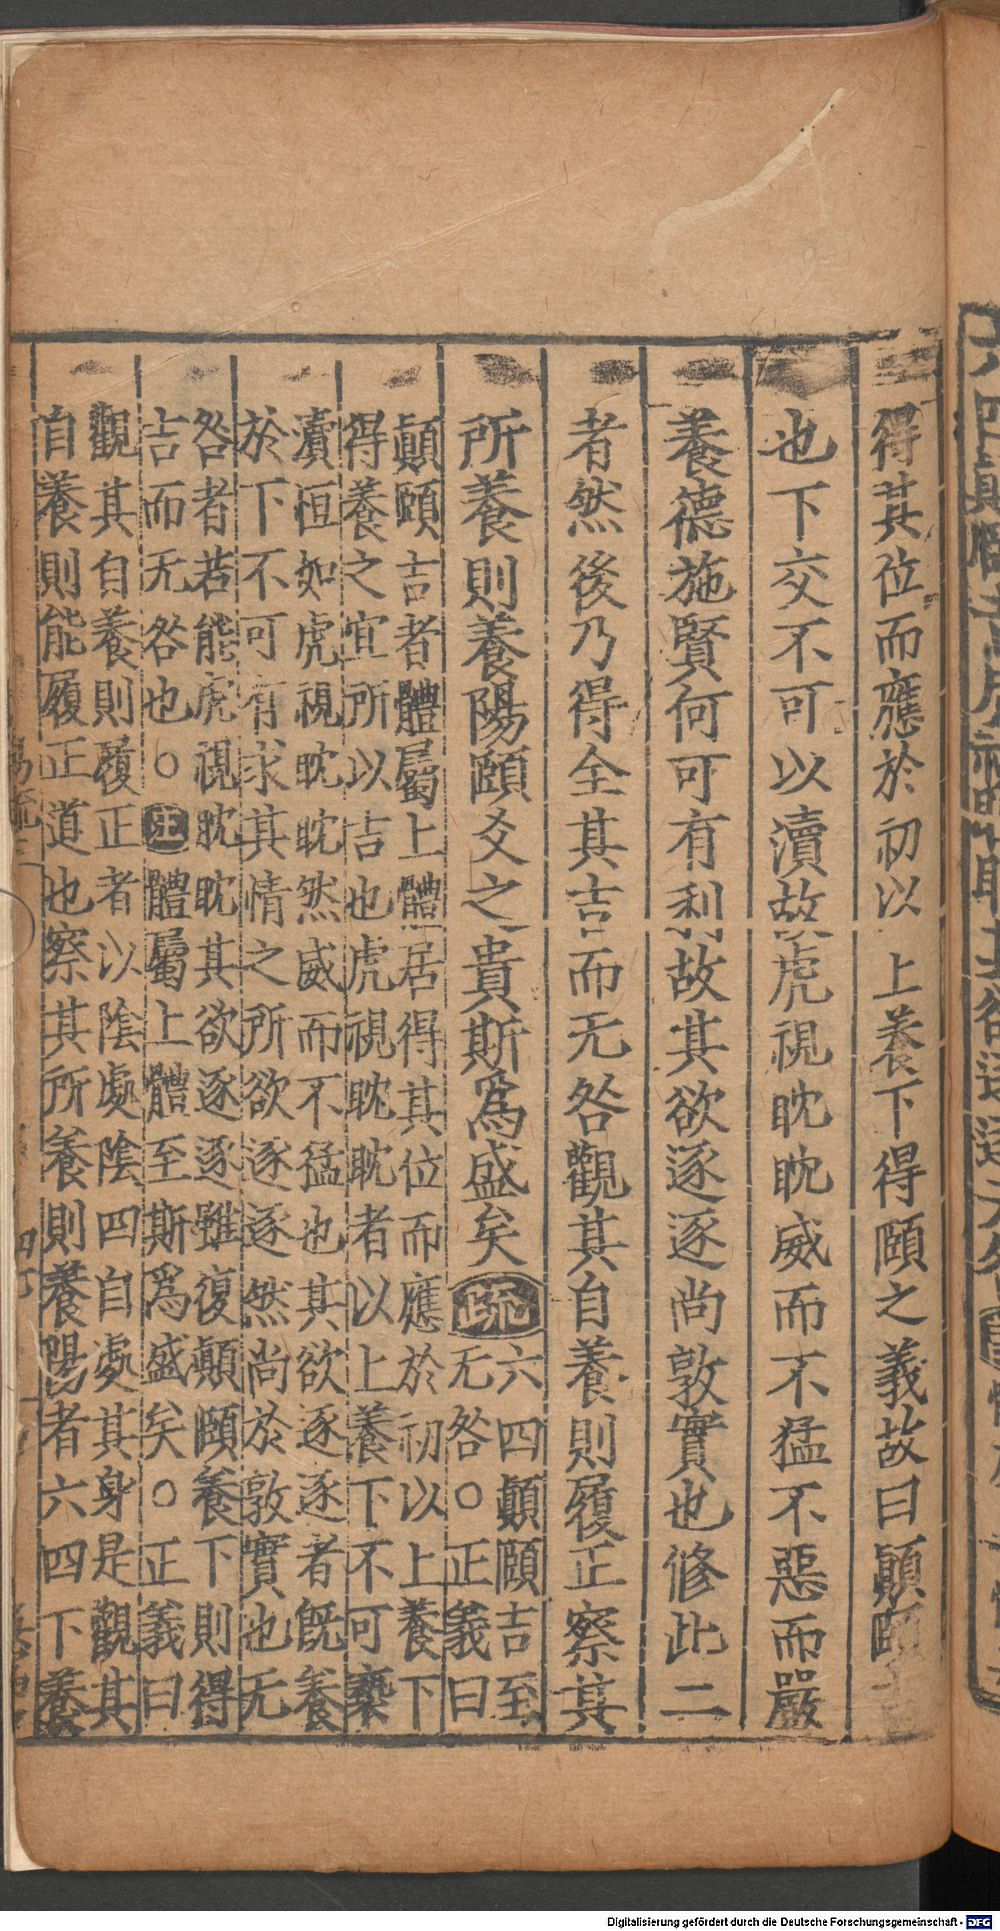 得其位而應於初以上養下得頤之義故曰顚頤吉
也下交不可以瀆故虎視眈眈威而不猛不惡而嚴
養德施賢何可有利故其欲逐逐尚敦實也修此二
者然後乃得全其吉而无咎觀其自養則履正察其
所養則養陽頤爻之貴斯爲盛矣疏六四顚頤吉至
无咎○正義曰
顚頤吉者體屬上體居得其位而應於初以上養下
得養之宜所以吉也虎視眈眈者以上養下不可褻
瀆恒如虎視眈眈然威而不猛也其欲逐逐者旣養
於下不可有求其情之所欲逐逐然尚於敦實也无
咎者若能虎視眈眈其欲逐逐雖復顚頤養下則得
吉而无咎也○注體屬上體至斯爲盛矣○正義曰
觀其自養則履正者以陰處陰四自處其身是觀其
自養則能履正道也察其所養則養陽者六四下養
Digitalisierung gefördert durch die Deutsche Forschungsgemeinschaft - DFG